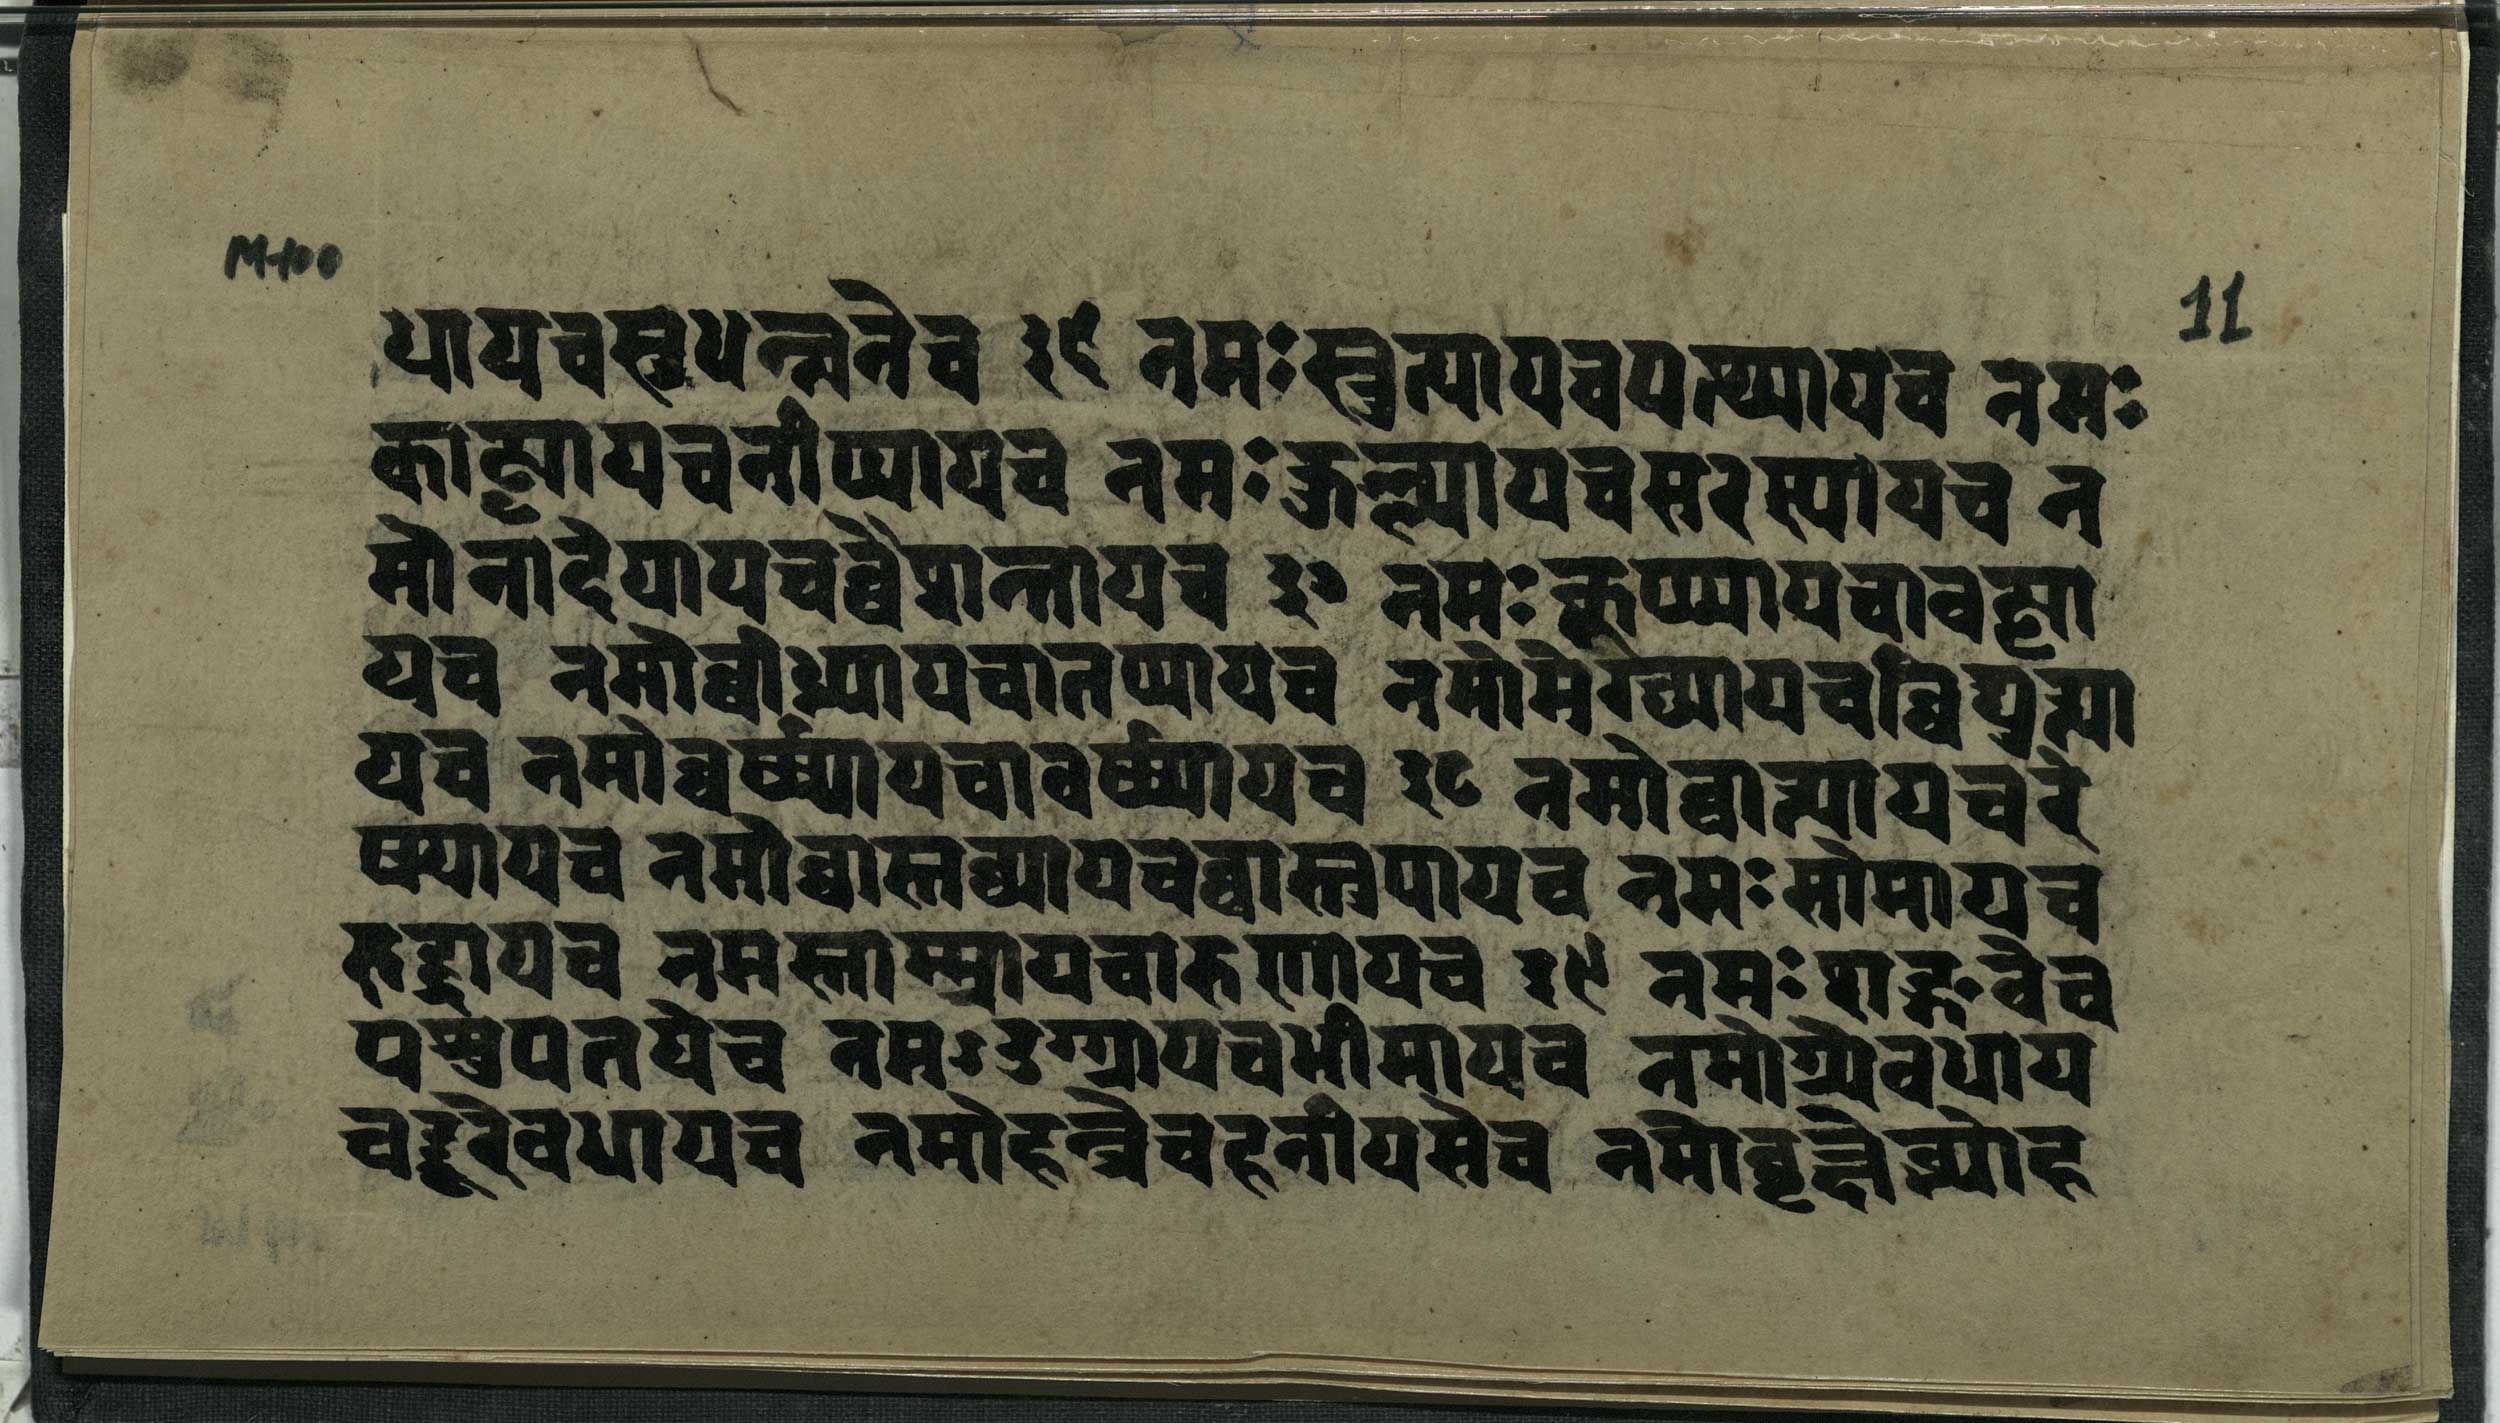 M-100
11
धायचसुधन्न्वनेच ३६ नमःस्रुत्यायचपत्थ्यायच नमः
काट्ट्यायचनीप्प्यायच नमःकुल्ल्यायचसरस्यायच न
मोनादेयायचव्वैशन्तायच ३७ नमःकूप्प्यायचावट्ट्या
यच नमोव्वीध्र्यायचातप्प्यायच नमोमेग्घ्यायचव्विद्युत्या
यच नमोव्वर्ष्यायचावर्ष्यायच ३८ नमोव्वात्यायचरे
ष्म्यायच नमोव्वास्तव्यायचव्वास्तुपायच नमःसोमायच
रुद्द्रायच नमस्ताम्म्रायचारुणायच ३९ नमःशङ्गवेच
पशुपतयेच नमऽउग्ग्रायचभीमायच नमोग्ग्रेवधाय
चदूरेवधायच नमोहन्त्रेचहनीयसेच नमोव्वृक्षेब्भ्योह